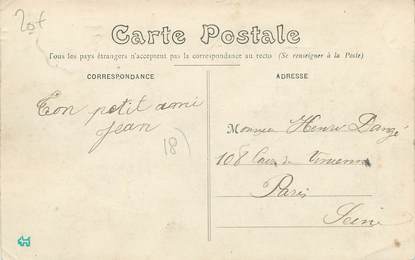 20f
Carte Postale
Tous les pays étrangers n'acceptent pas la correspondance au recto (Se renseigner à la Poste)
CORRESPONDANCE
ADRESSE
Ton petit ami
Jean
18)
Monsieur Henri Dangé
108 Cours de Vincennes
Paris
Seine